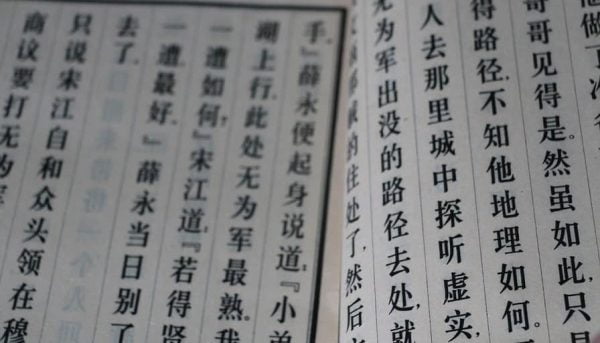 哥哥见得是。然虽如此,只
得路径,不知他地理如何。
人去那里城中探听虚实,
无为军出没的路径去处,就
的住处了,然后
手。』薛永便起身说道:『小弟
湖上行。此处无为军最熟。我
一遭如何?』宋江道:『若得贤
一遭最好。』薛永当日别了
去了。
只说宋江自和众头领在穆
商议要打无为军